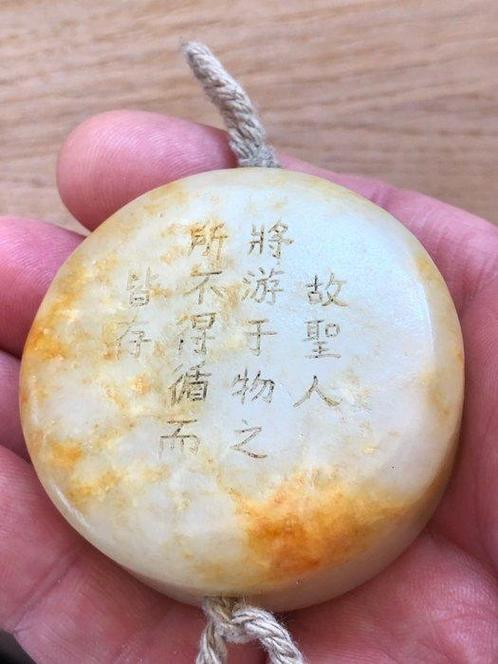 故聖人
將游于物之
所不得循而
皆存